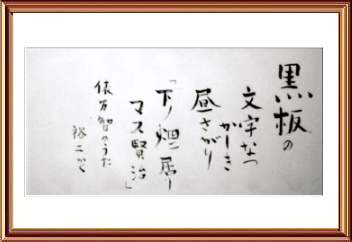 黒板の
文字なつ
かしき
昼さがり
「下ノ畑ニ居リ
マス賢治」
俵万智のうた
裕二かく